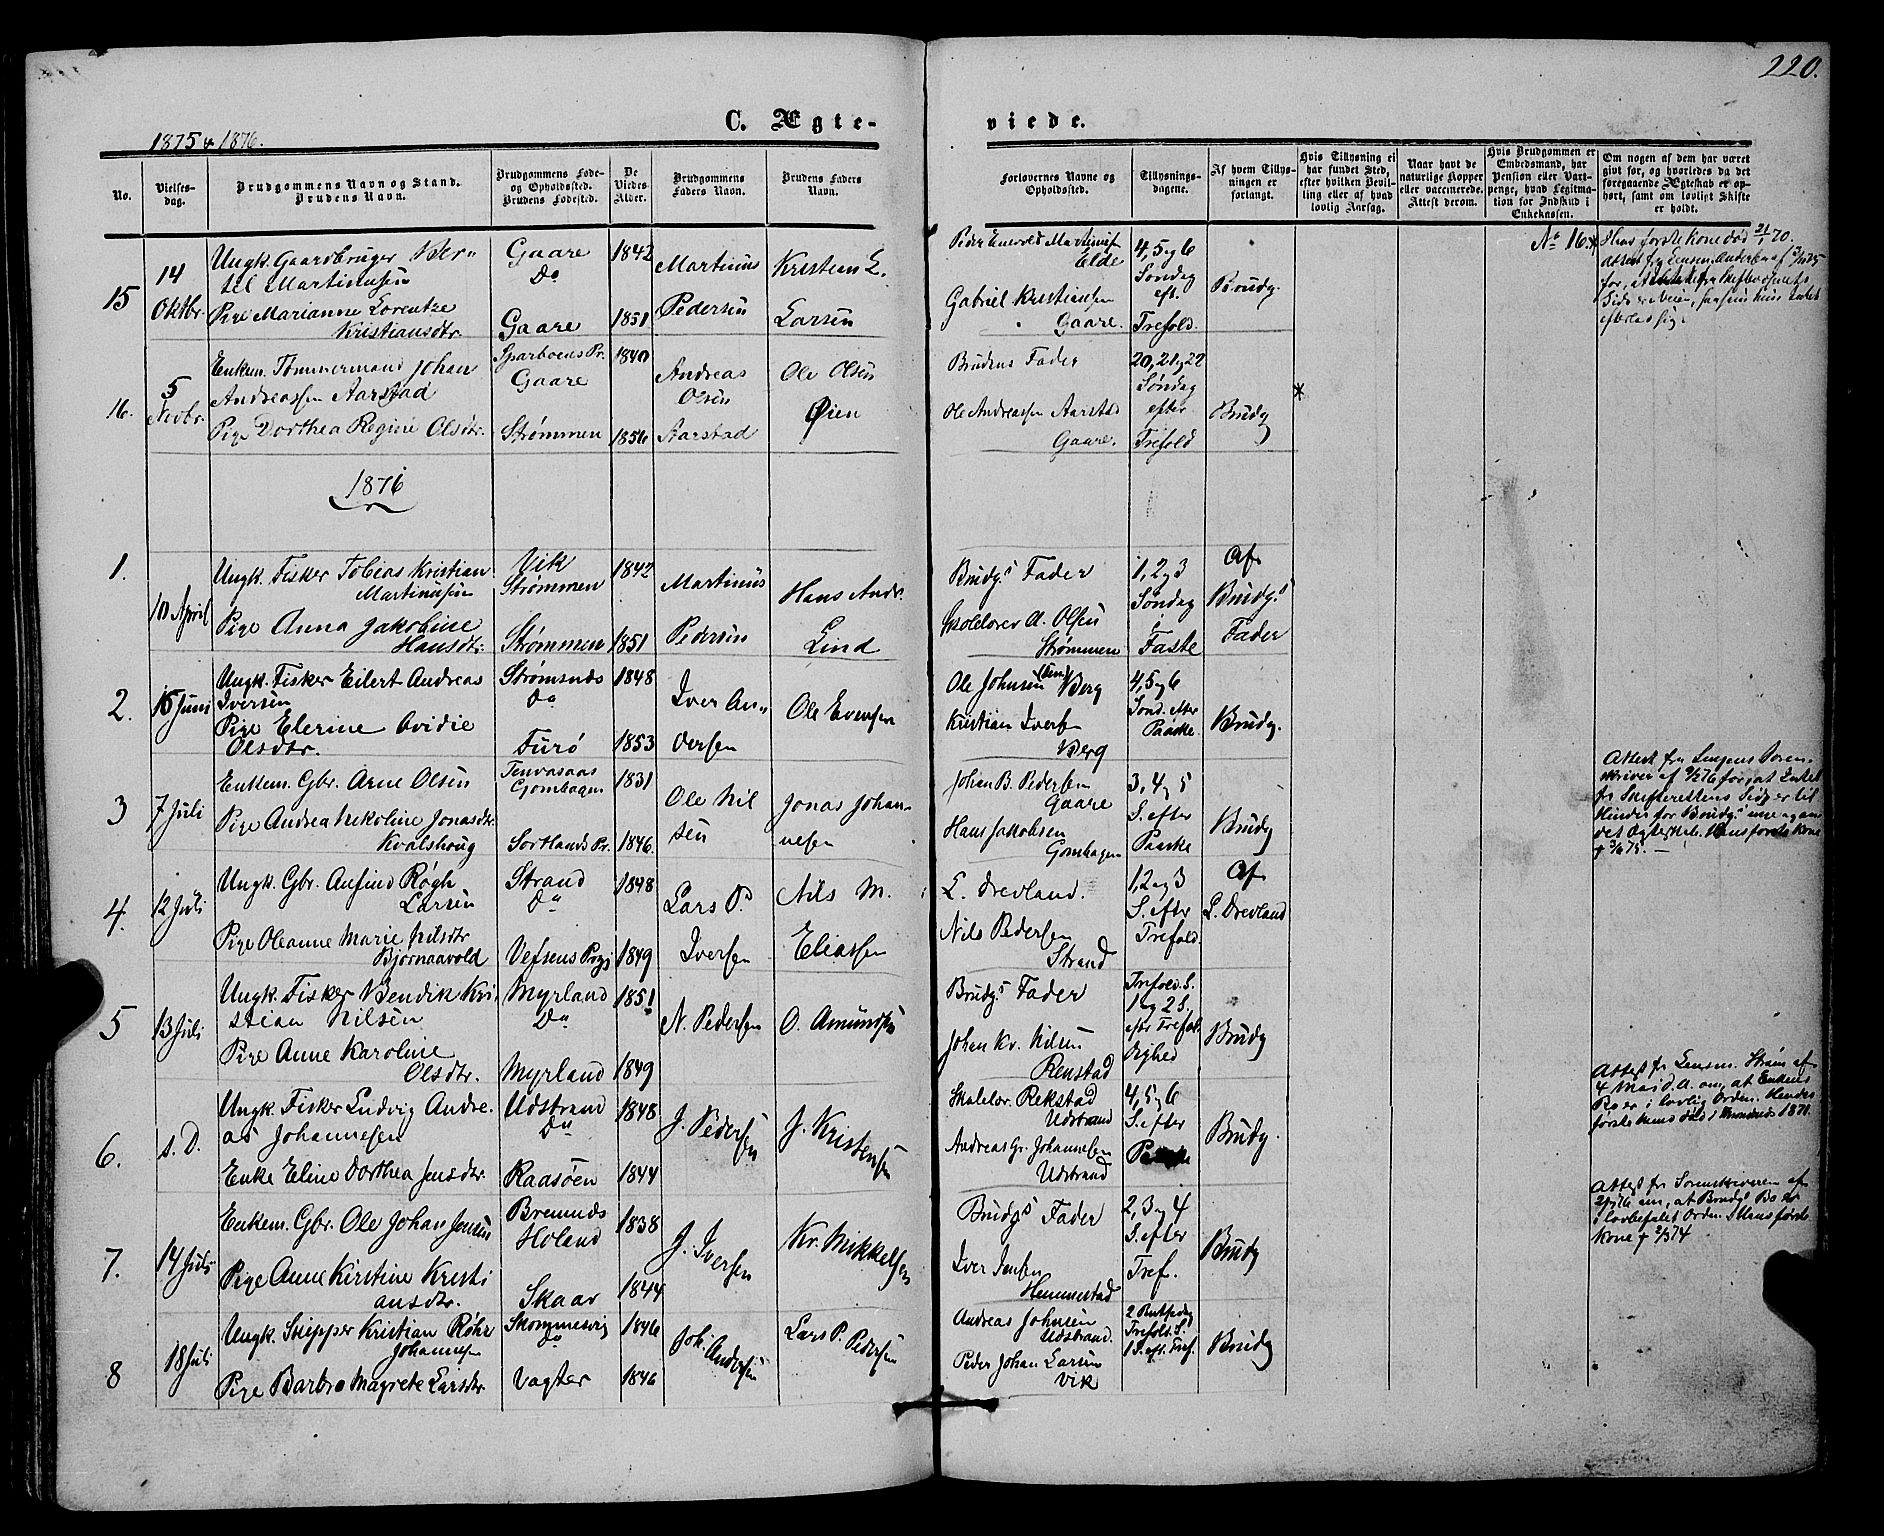 220.
1875 & 1876.
C. Ægte-
viede.
No.
Vielses-
dag.
Brudgommens Navn og Stand.
Brudens Navn.
Brudgommens Føde-
og Opholdssted.
Brudens Fødested.
De
Viedes
Alder.
Brudgommens
Faders Navn.
Brudens Faders
Navn.
Forlovernes Navne og
Opholdssted.
Tillysnings-
dagene.
Af hvem Tillys-
ningen er
forlangt.
Hvis Tillysning ei
har fundet Sted,
efter hvilken Bevil-
ling eller af hvad
lovlig Aarsag.
Naar havt de
naturlige Kopper
eller vaccinerede.
Attest derom.
Hvis Brudgommen er
Embedsmand, har
Pension eller Vart-
penge, hvad Legitima-
tion for Indskud i
Enkekassen.
Om nogen af dem har været
givt før, og hvorledes da det
foregaaende Ægteskab er op-
hørt, samt om lovligt Skifte
er holdt.
15
14
Oktbr.
Ungk. Gaardbruger Ber-
tel Martinusen
Pige Marianne Lorentze
Kristiansdtr.
Gaare
Do
Gaare
1842
1851
Martinus
Pedersen
Kristian L.
Larsen
Peder Enevold Martinusf
Elde
Gabriel Kristiansen
Gaare.
4, 5 og 6
Søndag
eft.
Trefold.
Brudg.
No 16.*
Hans første Kone død 21/1 70.
16.
5
Novbr.
Enkem. Tømmermand Johan
Andreassen Aarstad
Pige Dorthea Regine Olsdtr.
Sparboens Pr.
Gaare
Strømmen
1840
1856
Andreas
Olsen
Aarstad
Ole Olsen
Øien
Brudens Fader
Ole Andreassen Aarstad
Gaare.
20, 21 og 22
Søndag
efter
Trefold
Brudg
*
1876
1.
10 April
Ungk. Fisker Tobias Kristian
Martinusen
Pige Anna Jakobine
Hansdtr.
Vik
Strømmen
Strømmen
1842
1851
Martinus
Pedersen
Hans Andr.
Lind
Brudgs Fader
Skolelærer A. Olsen
Strømmen
1, 2 og 3
Søndag
i
Faste
Af
Brudgs
Fader
2.
15 Juni
Ungk. Fisker Eilert Andreas
Iversen
Pige Elerine Ovidie
Olsdtr.
Strømsnds
Do
Furø
1848
1853
Iver An-
dersen
Ole Evensen
Ole Johnsen Berg
Kristian Iversen
Berg
4, 5 og 6
Sønd. efter
Paaske
Brudg.
3
7 Juli
Enkem. Gbr. Arne Olsen
Pige Andrea Nekoline Jonasdtr.
Kvalshoug
Gomhagen
Sortlands Pr.
1831
1846.
Ole Nil
sen
Jonas Johan-
nesen
Johan B. Pedersen
Gaare
Hans Jakobsen
Gomhagen
3, 4 og 5
S. efter
Paaske
Brudg
4.
12 Juli
Ungk. Gbr. Anfind Røgh
Larsen
Pige Oleanne Marie Nilsdtr
Bjørnaavold
Strand
Do
Vefsens Prgj
1848
1849
Lars P.
Iversen
Nils M.
Eliassen
L. Drevland.
Nils Pedersen
Strand
1, 2 og 3
S. efter
Trefold.
Af
L. Drevland
5
13 Juli
Ungk. Fisker Bendik Kri
stian Nilsen
Pige Anne Karoline
Olsdtr.
Myrland
Do
Myrland
1851
1849
N. Pedersen
O. Amundsen
Brudgs Fader
Johan Kr. Nilsen
Renstad
Trefold. S.
1 og 2 S.
efter Trefol.
Brudg
6.
s. D.
Ungk. Fisker Ludvig Andre.
as Johannesen
Enke Eline Dorthea Jensdtr.
Udstrand
Do
Raasøen
1848
1844
J. Pedersen
J. Kristensen
Skolelær. Rekstad
Udstrand
Andreas Gr. Johannesen
Udstrand
4, 5 og 6
S. efter
Paaske
Brudg.
Attest fr Lensm. Strøm af
4 Mai d. A. om, at Enkens
Bo er i lovlig Orden. Hendes
7.
14 Juli
Enkem. Gbr. Ole Johan Jensen
Pige Anne Kirstine Kristi
ansdtr.
Bremnds
Holand
Skaar
1838
1844
J. Iversen
Kr. Mikkelsen
Brudgs Fader
Iver Jensen
Hemmestad
2, 3 og 4
S. efter
Tref.
Brudg
Attest fr Sorenskriveren af
om, at Brudgs Bo er
i lovbefalet Orden. Hans første
Kone †
8
18 Juli
Ungk. Skipper Kristian Røhr
Johannesen
Pige Barbro Magrete Larsdtr.
Skommesvig
Do
Vagter
1846
1846
Joh. Andersen
Lars P. Pedersen
Andreas Johnsen
Udstrand.
Peder Johan Larsen
Vik
Trefold. S.
1 S. eft. Tref.
Brudg